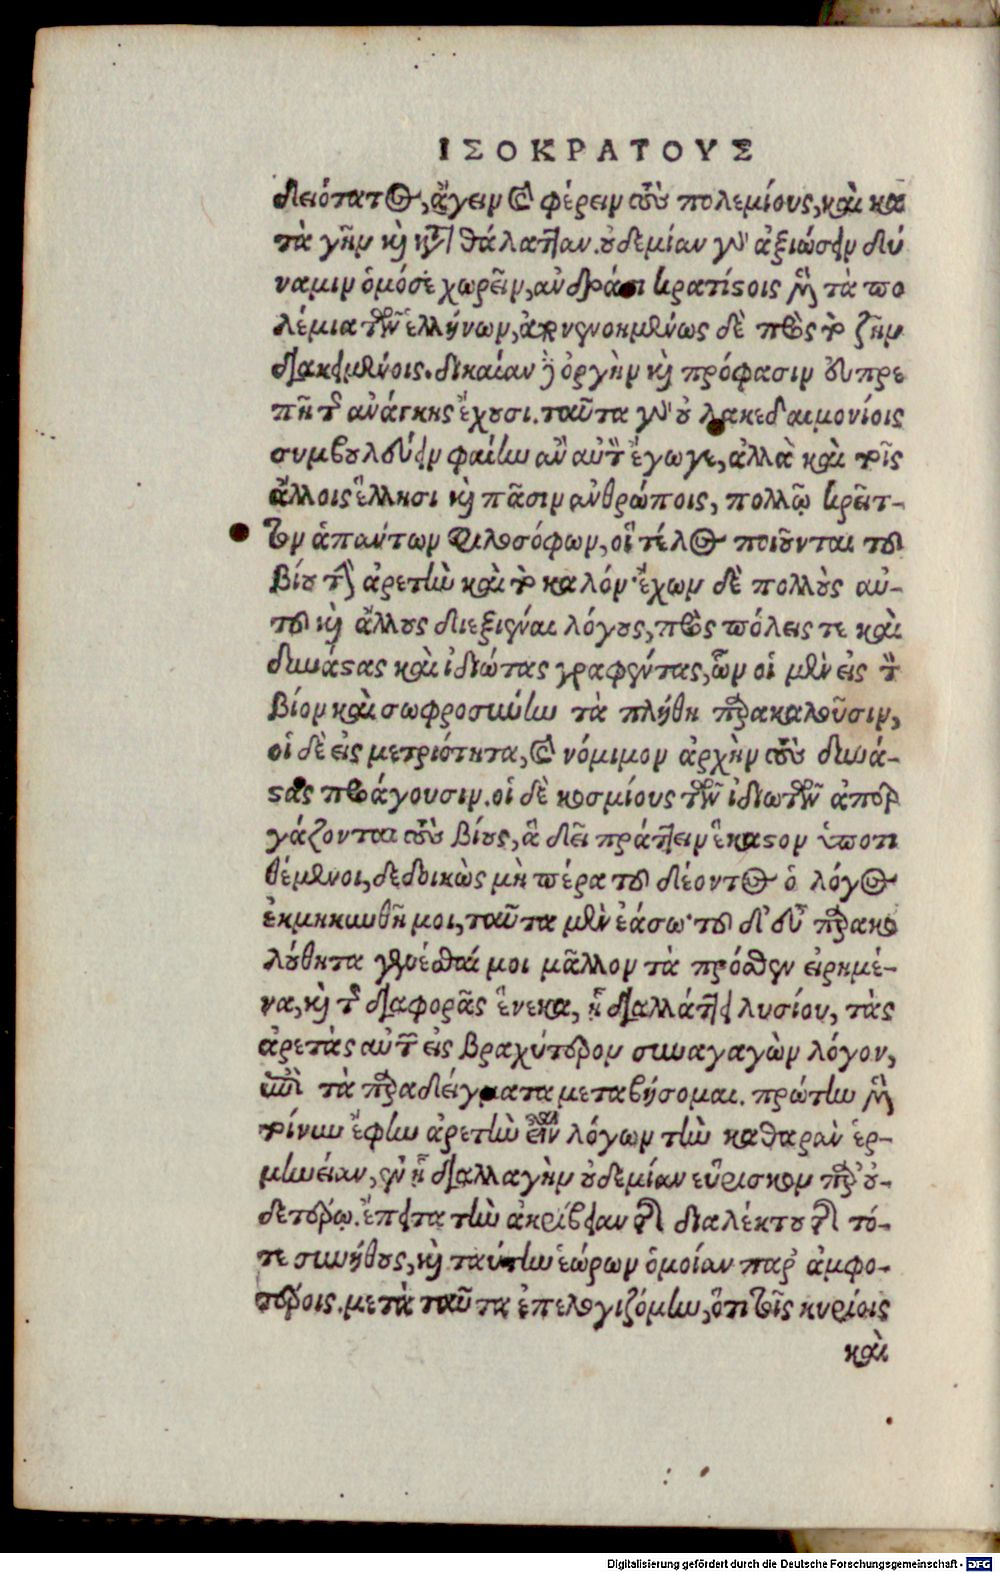 ΙΣΟΚΡΑΤΟΥΣ
δειότατος, ἄγειν καὶ φέρειν τοὺς πολεμίους, καὶ κα
τὰ γῆν καὶ κατὰ θάλατταν. οὐδεμίαν γὰρ ἀξιώσειν δύ
ναμιν ὁμόσε χωρεῖν, ἀνδράσι κρατίστοις μὲν τὰ πο
λέμια τῶν ἑλλήνων, ἀπονενοημένως δὲ πρὸς τὸ ζῆν
διακειμένοις. δικαίαν δὲ ὀργὴν καὶ πρόφασιν εὐπρε
πῆ τῆς ἀνάγκης ἔχουσι. ταῦτα γὰρ οὐ λακεδαιμονίοις
συμβουλεύειν φαίην ἂν αὐτὸν ἔγωγε, ἀλλὰ καὶ τοῖς
ἄλλοις ἕλλησι καὶ πᾶσιν ἀνθρώποις, πολλῷ κρεῖτ-
τον ἁπάντων φιλοσόφων, οἳ τέλος ποιοῦνται τοῦ
βίου τὴν ἀρετὴν καὶ τὸ καλόν. ἔχων δὲ πολλοὺς αὐ-
τοῦ καὶ ἄλλους διεξιέναι λόγους, πρὸς πόλεις τε καὶ
δυνάστας καὶ ἰδιώτας γραφέντας, ὧν οἱ μὲν εἰς
βίον καὶ σωφροσύνην τὰ πλήθη παρακαλοῦσιν,
οἱ δὲ εἰς μετριότητα, καὶ νόμιμον ἀρχὴν τοὺς δυνά-
στας προάγουσιν. οἱ δὲ κοσμίους τῶν ἰδιωτῶν ἀπερ
γάζονται τοὺς βίους, ἃ δεῖ πράττειν ἕκαστον ὑποτι
θέμενοι, δεδοικὼς μὴ πέρα τοῦ δέοντος ὁ λόγος
ἐκμηκυνθῇ μοι, ταῦτα μὲν ἐάσω. τοῦ δ' εὖ παρακο
λούθητα γενέσθαι μοι μᾶλλον τὰ πρόσθεν εἰρημέ-
να, καὶ τῆς διαφορᾶς ἕνεκα, ᾗ διαλλάττει λυσίου, τὰς
ἀρετὰς αὐτῶν εἰς βραχύτερον συναγαγὼν λόγον,
ἐπὶ τὰ παραδείγματα μεταβήσομαι. πρώτην μὲν
τοίνυν ἔφην ἀρετὴν εἶναι λόγων τὴν καθαρὰν ἑρ-
μηνείαν, ἐν ᾗ διαλλαγὴν οὐδεμίαν εὕρισκον παρ' οὐ-
δετέρῳ. ἔπειτα τὴν ἀκρίβειαν τῆς διαλέκτου τῆς τό-
τε συνήθους, καὶ ταύτην ἑώρων ὁμοίαν παρ' ἀμφο-
τέροις. μετὰ ταῦτα ἐπελογιζόμην, ὅτι τοῖς κυρίοις
καὶ
Digitalisierung gefördert durch die Deutsche Forschungsgemeinschaft - DFG